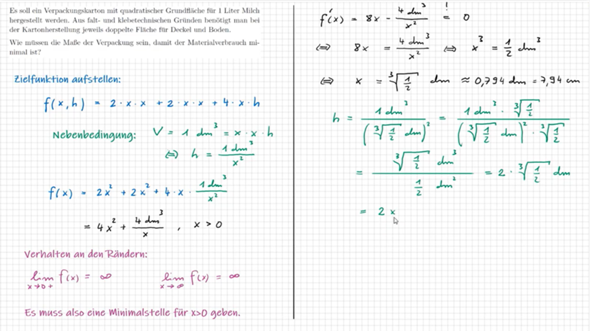 Es soll ein Verpackungskarton mit quadratischer Grundfläche für 1 Liter Milch
hergestellt werden. Aus falt- und klebetechnischen Gründen benötigt man bei
der Kartonherstellung jeweils doppelte Fläche für Deckel und Boden.
Wie müssen die Maße der Verpackung sein, damit der Materialverbrauch mi-
nimal ist?
Zielfunktion aufstellen:
f(x,h) = 2·x·x + 2·x·x + 4·x·h
Nebenbedingung: V = 1 dm³ = x·x·h
⇔ h = 1 dm³/x²
f(x) = 2x² + 2x² + 4·x· 1 dm³/x²
= 4x² + 4 dm³/x , x > 0
Verhalten an den Rändern:
lim x→0+ f(x) = ∞ lim x→∞ f(x) = ∞
Es muss also eine Minimalstelle für x>0 geben.
f'(x) = 8x - 4 dm³/x² =! 0
⇔ 8x = 4 dm³/x² ⇔ x³ = 1/2 dm³
⇔ x = ³√(1/2) dm ≈ 0,794 dm = 7,94 cm
h = 1 dm³/(³√(1/2) dm)² = 1 dm³ · ³√(1/2)/((³√(1/2) dm)² · ³√(1/2))
= ³√(1/2) dm³/(1/2 dm²) = 2 · ³√(1/2) dm
= 2x